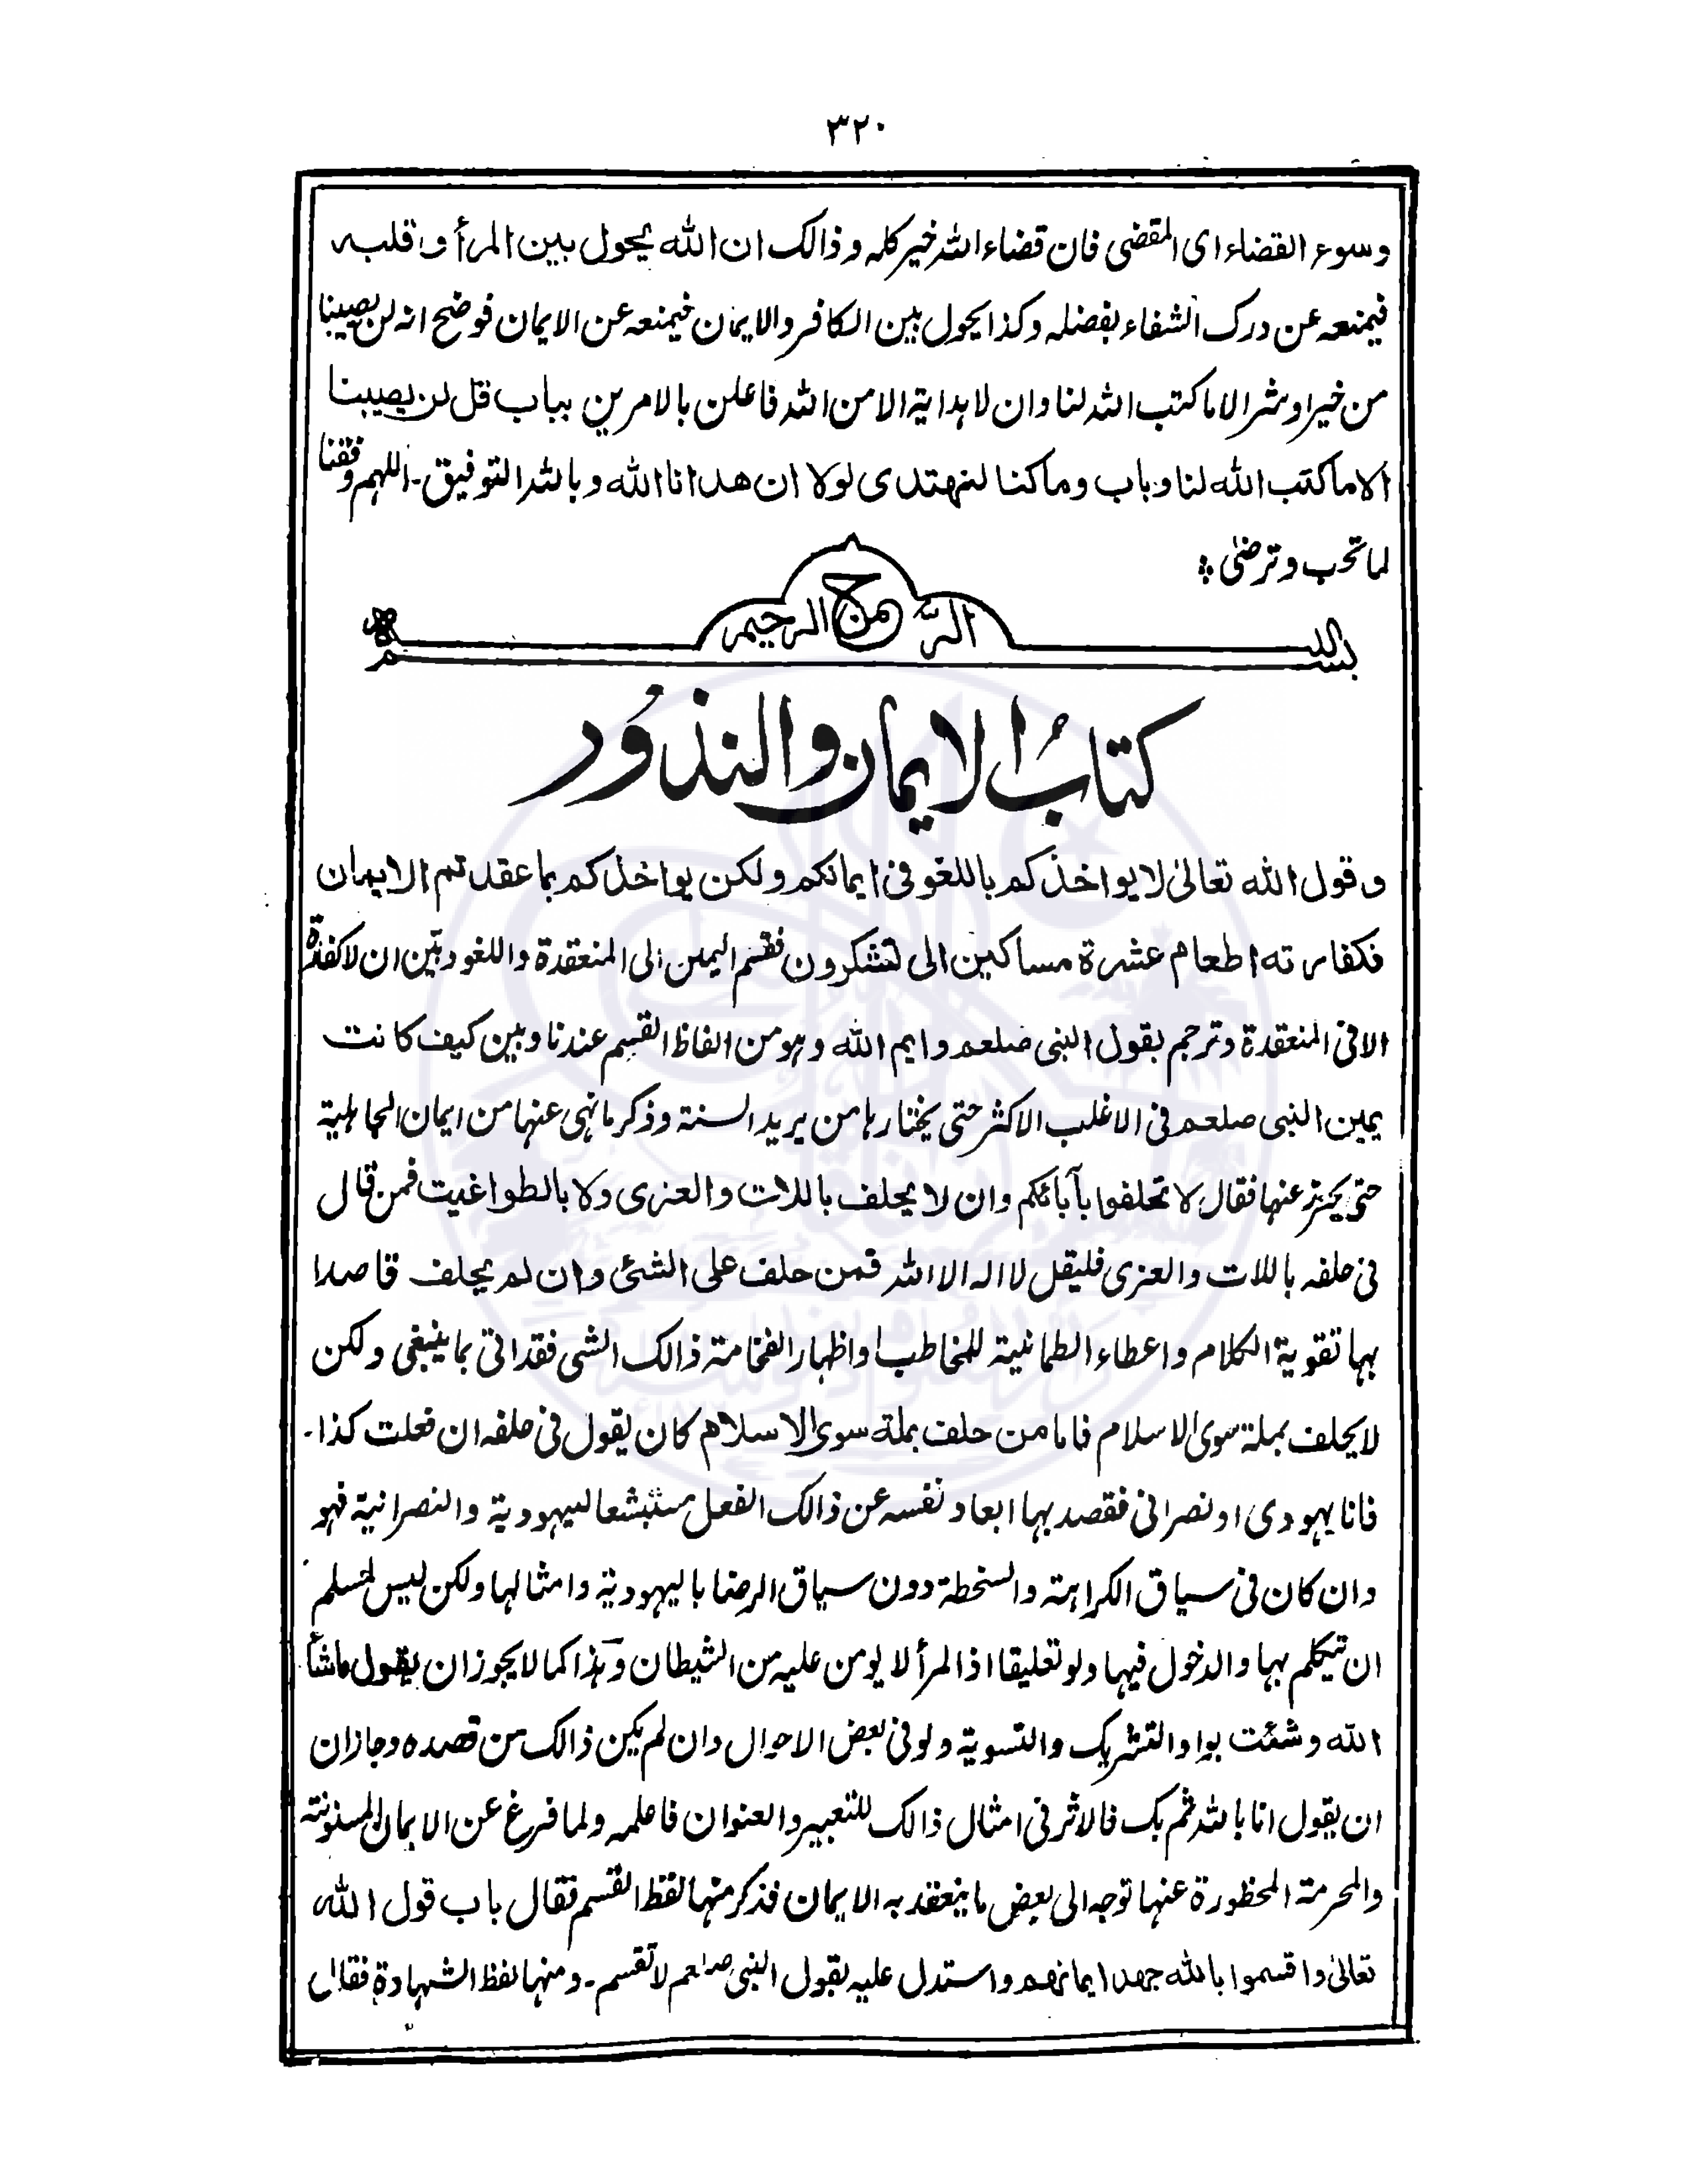 ٣٢٠
وسوء القضاء اى المقضى فان قضاء الله خير كله و ذالك ان الله يحول بين المرأ و قلبه
فيمنعه عن درك الشفاء بفضله وكذا يحول بين الكافر والايمان فيمنعه عن الايمان فوضح انه لن يصيبنا
من خير او شر الا ما كتب الله لنا وان لا هداية الا من الله فاعلن بالامرين بباب قل لن يصيبنا
الا ما كتب الله لنا وباب وما كنا لنهتدى لولا ان هدانا الله وبالله التوفيق - اللهم وفقنا
لما تحب وترضىٰ
بسم الله الرَّحمن الرحيم
كتابُ الايمان والنذوُر
وقول الله تعالىٰ لا يواخذكم باللغو فى ايمانكم ولكن يواخذكم بما عقدتم الايمان
فكفارته اطعام عشرة مساكين الى تشكرون فقسم اليمين الى المنعقدة واللغو وبيّن ان لا كفارة
الا فى المنعقدة وترجم بقول النبى صلعم وايم الله وهو من الفاظ القسم عندنا وبين كيف كانت
يمين النبى صلعم فى الاغلب الاكثر حتى يختارها من يريد السنة وذكر ما نهى عنها من ايمان الجاهلية
حتى يحترز عنها فقال لا تحلفوا بآبائكم وان لا يحلف باللات والعزى ولا بالطواغيت فمن قال
فى حلفه باللات والعزى فليقل لا اله الا الله فمن حلف على الشئ وان لم يحلف قاصدا
بها تقوية الكلام واعطاء الطمانية للمخاطب او اظهار الفخامة ذالك الشى فقد اتى بما ينبغى ولكن
لا يحلف بملة سوى الاسلام فاما من حلف بملة سوى الاسلام كان يقول فى حلفه ان فعلت كذا -
فانا يهودى او نصرانى فقصد بها ابعاد نفسه عن ذالك الفعل مستبشعا لليهودية والنصرانية فهو
وان كان فى سياق الكراهة والسخطة دون سياق الرضا باليهودية وامثالها ولكن ليس لمسلم
ان يتكلم بها والدخول فيها ولو تعليقا اذ المرأ لا يومن عليه من الشيطان وهٰذا كما لا يجوز ان يقول ماشأ
الله وشئت بواو التشريك والتسوية ولو فى بعض الاحوال وان لم يكن ذالك من قصده وجاز ان
ان يقول انا بالله ثم بك فالاثر فى امثال ذالك للتعبير والعنوان فاعلمه ولما فرغ عن الايمان المسنونة
والمحرمة المحظورة عنها توجه الى بعض ما ينعقد به الايمان فذكر منها لفظ القسم فقال باب قول الله
تعالىٰ واقسموا بالله جهد ايمانهم واستدل عليه بقول النبى صلعم لا تقسم - ومنها لفظ الشهادة فقال